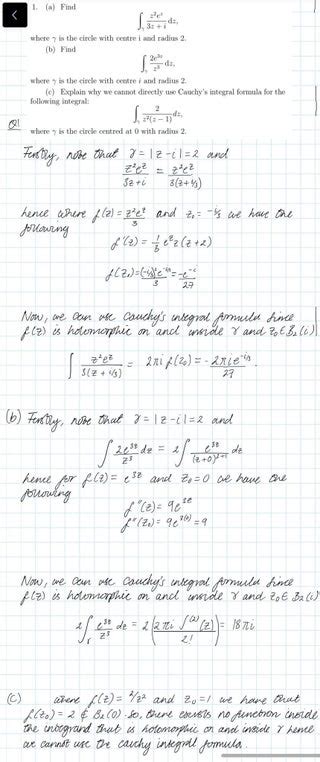 1. (a) Find
∫_γ z²eᶻ/(3z + i) dz,
where γ is the circle with centre i and radius 2.
(b) Find
∫_γ 2e³ᶻ/z³ dz,
where γ is the circle with centre i and radius 2.
(c) Explain why we cannot directly use Cauchy's integral formula for the
following integral:
∫_γ 2/(z²(z − 1)) dz,
where γ is the circle centred at 0 with radius 2.
Q1
Firstly, note that γ = |z - i| = 2 and
z²eᶻ/(3z + i) = z²eᶻ/(3(z + i/3))
hence where f(z) = z²eᶻ/3 and z₀ = -i/3 we have the
following
f'(z) = 1/3 eᶻz(z + 2)
Now, we can use Cauchy's integral formula since
f(z) is holomorphic on and inside γ and z₀ ∈ B₂(i).
∫ z²eᶻ/(3(z + i/3)) = 2πi f(z₀) = - 2πie^(-i/3)/27.
(b) Firstly, note that γ = |z - i| = 2 and
∫ 2e³ᶻ/z³ dz = 2∫ e³ᶻ/(z+0)²⁺¹ dz
hence for f(z) = e³ᶻ and z₀ = 0 we have the
following
f''(z) = 9e³ᶻ
f''(z₀) = 9e³⁽⁰⁾ = 9
Now, we can use Cauchy's integral formula since
f(z) is holomorphic on and inside γ and z₀ ∈ B₂(i)
2∫_γ e³ᶻ/z³ dz = 2(2πi f⁽²⁾(z)/2!) = 18πi
(C) where f(z) = 2/z² and z₀ = 1 we have that
f(z₀) = 2 ∉ B₂(0). So, there exists no function inside
the integrand that is holomorphic on and inside γ hence
we cannot use the cauchy integral formula.